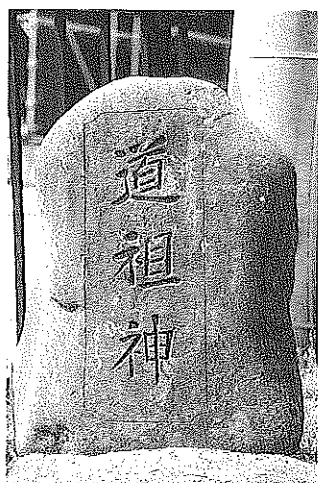 道祖神